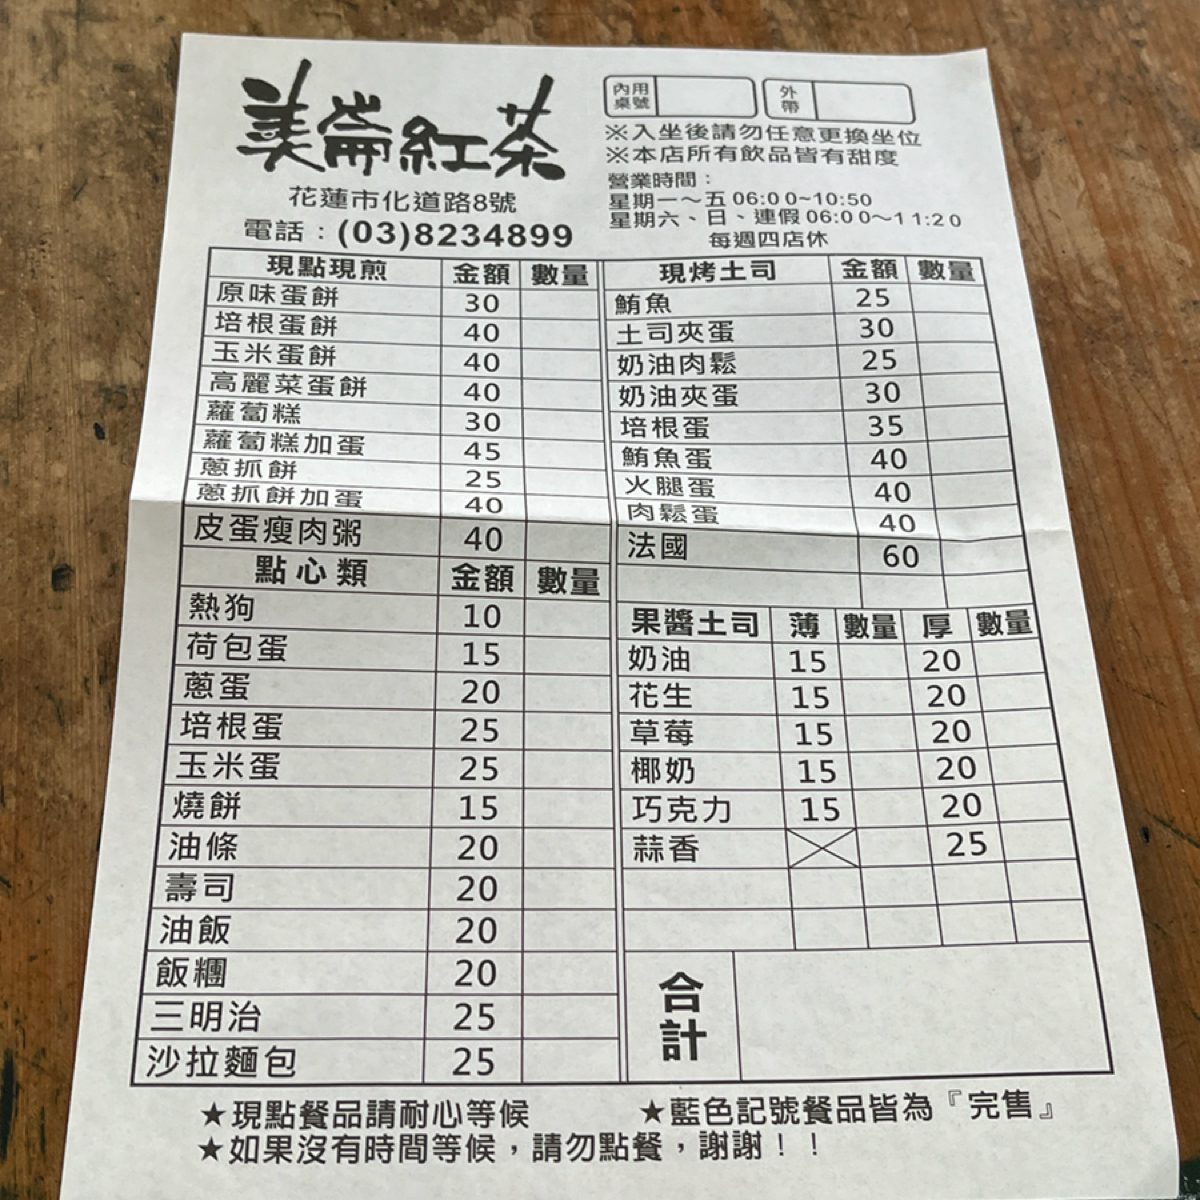 美崙紅茶
花蓮市化道路8號
電話：(03)8234899
內用桌號
外帶
※入坐後請勿任意更換坐位
※本店所有飲品皆有甜度
營業時間：
星期一～五 06:00~10:50
星期六、日、連假 06:00～11:20
每週四店休
現點現煎 金額 數量
原味蛋餅 30
培根蛋餅 40
玉米蛋餅 40
高麗菜蛋餅 40
蘿蔔糕 30
蘿蔔糕加蛋 45
蔥抓餅 25
蔥抓餅加蛋 40
皮蛋瘦肉粥 40
點心類 金額 數量
熱狗 10
荷包蛋 15
蔥蛋 20
培根蛋 25
玉米蛋 25
燒餅 15
油條 20
壽司 20
油飯 20
飯糰 20
三明治 25
沙拉麵包 25
現烤土司 金額 數量
鮪魚 25
土司夾蛋 30
奶油肉鬆 25
奶油夾蛋 30
培根蛋 35
鮪魚蛋 40
火腿蛋 40
肉鬆蛋 40
法國 60
果醬土司 薄 數量 厚 數量
奶油 15 20
花生 15 20
草莓 15 20
椰奶 15 20
巧克力 15 20
蒜香 25
合計
★現點餐品請耐心等候
★藍色記號餐品皆為『完售』
★如果沒有時間等候，請勿點餐，謝謝！！